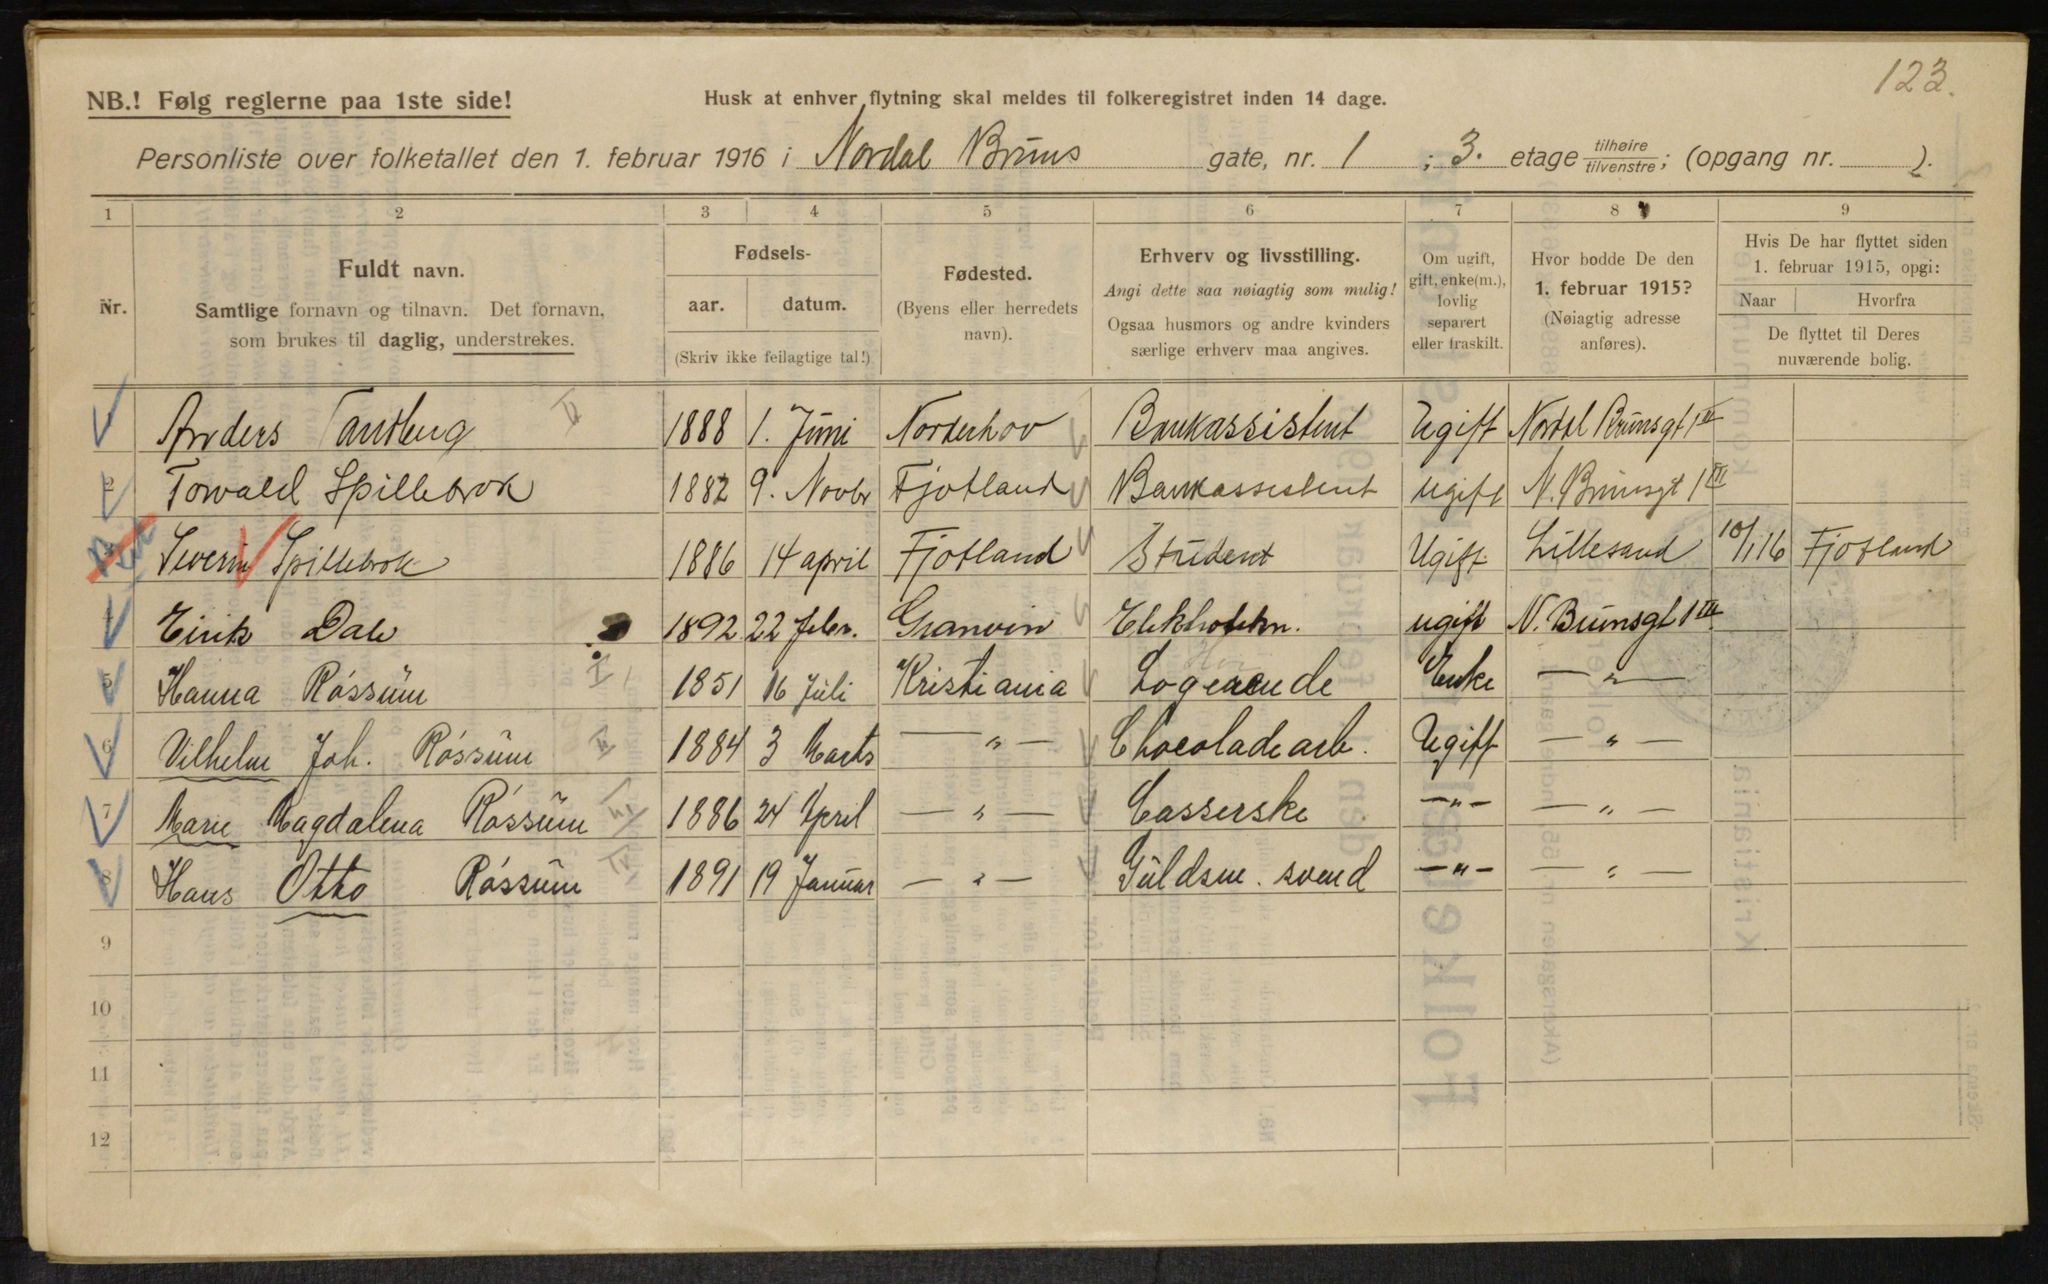 123.
NB.! Følg reglerne paa 1ste side!
Husk at enhver flytning skal meldes til folkeregistret inden 14 dage.
Personliste over folketallet den 1. februar 1916 i Nordal Bruns gate, nr. 1 ; 3. etage tilhøire tilvenstre; (opgang nr. ).
1 2 3 4 5 6 7 8 9
Nr.
Fuldt navn.
Samtlige fornavn og tilnavn. Det fornavn, som brukes til daglig, understrekes.
Fødsels-
aar. datum.
(Skriv ikke feilagtige tal!)
Fødested.
(Byens eller herredets navn).
Erhverv og livsstilling.
Angi dette saa nøiagtig som mulig!
Ogsaa husmors og andre kvinders særlige erhverv maa angives.
Om ugift, gift, enke(m.), lovlig separert eller fraskilt.
Hvor bodde De den 1. februar 1915?
(Nøiagtig adresse anføres).
Hvis De har flyttet siden 1. februar 1915, opgi:
Naar Hvorfra
De flyttet til Deres nuværende bolig.
1 Anders Tandberg 1888 1. Juni Norderhov Bankassistent Ugift Nordal Brunsgt 1 III
2 Torvald Spillebrok 1882 9. Novbr Fjotland Bankassistent Ugift N. Brunsgt 1 III
3 Severin Spillebrok 1886 14 april Fjotland Student Ugift Lillesand 10/1 16 Fjotland
4 Eirik Dale 1892 22 febr. Granvin ugift N. Brunsgt 1 III
5 Hanna Róssum 1851 16 Juli Kristiania Logerende Enke — " —
6 Vilhelm Joh. Róssum 1884 3 Marts — " — Chocoladearb. Ugift — " —
7 Marie Magdalena Róssum 1886 24 April — " — Casserske — " — — " —
8 Hans Otto Róssum 1891 19 Januar — " — Guldsm. svend — " — — " —
9
10
11
12